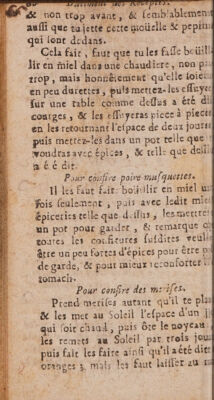 & non trop avant, & semblablemen
aussi que tu jette cette moüelle & pepins
qui sont dedans.
Cela fait, faut que tu les fasse boüilli
lir en miel dans une chaudiere, non pa
trop, mais honnêtement qu'elle soien
en peu durettes, puis mettez-les essuyer
sur une table comme dessus a été di
courges, & les essuyeras piece à piece
en les retournant l'espace de deux jour
puis mettez-les dans un pot telle que
voudras avec épices, & telle que dessu
a été dit.
Pour confire poire musquettes.
Il les faut faire boüillir en miel u
fois seulement, puis avec ledit mie
épiceries telle que dessus, les mettre
un pot pour garder, & remarque q
toutes les confitures susdites veule
être un peu fortes d'épices pour être
de garde, & pour mieux reconforter l
tomach.
Pour confire des merises.
Prend merises autant qu'il te pla
& les met au Soleil l'espace d'un
qui soit chaud, puis ôte le noyeau
les remets au Soleil par trois jours
puis fait les faire ainsi qu'il a été dit
oranges, mais les faut laisser au